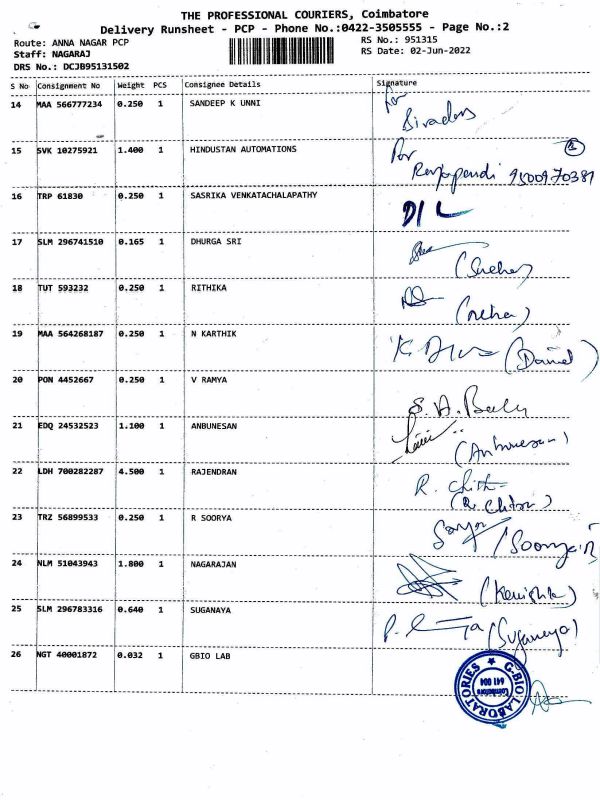 THE PROFESSIONAL COURIERS, Coimbatore
Delivery Runsheet - PCP - Phone No.:0422-3505555 - Page No.:2
Route: ANNA NAGAR PCP RS No.: 951315
Staff: NAGARAJ RS Date: 02-Jun-2022
DRS No.: DCJB95131502
S No Consignment No Weight PCS Consignee Details Signature
14 MAA 566777234 0.250 1 SANDEEP K UNNI for
15 SVK 10275921 1.400 1 HINDUSTAN AUTOMATIONS For
9500970381
16 TRP 61830 0.250 1 SASRIKA VENKATACHALAPATHY
17 SLM 296741510 0.165 1 DHURGA SRI
(Sneha)
18 TUT 593232 0.250 1 RITHIKA
(Neha)
19 MAA 564268187 0.250 1 N KARTHIK
(Daniel)
20 PON 4452667 0.250 1 V RAMYA
21 EDQ 24532523 1.100 1 ANBUNESAN
(Anbunesan)
22 LDH 700282287 4.500 1 RAJENDRAN
23 TRZ 56899533 0.250 1 R SOORYA
24 NLM 51043943 1.800 1 NAGARAJAN
(Kanishka)
25 SLM 296783316 0.640 1 SUGANAYA
(Suganaya)
26 NGT 40001872 0.032 1 GBIO LAB
G-BIO LABORATORIES
Coimbatore
641 004